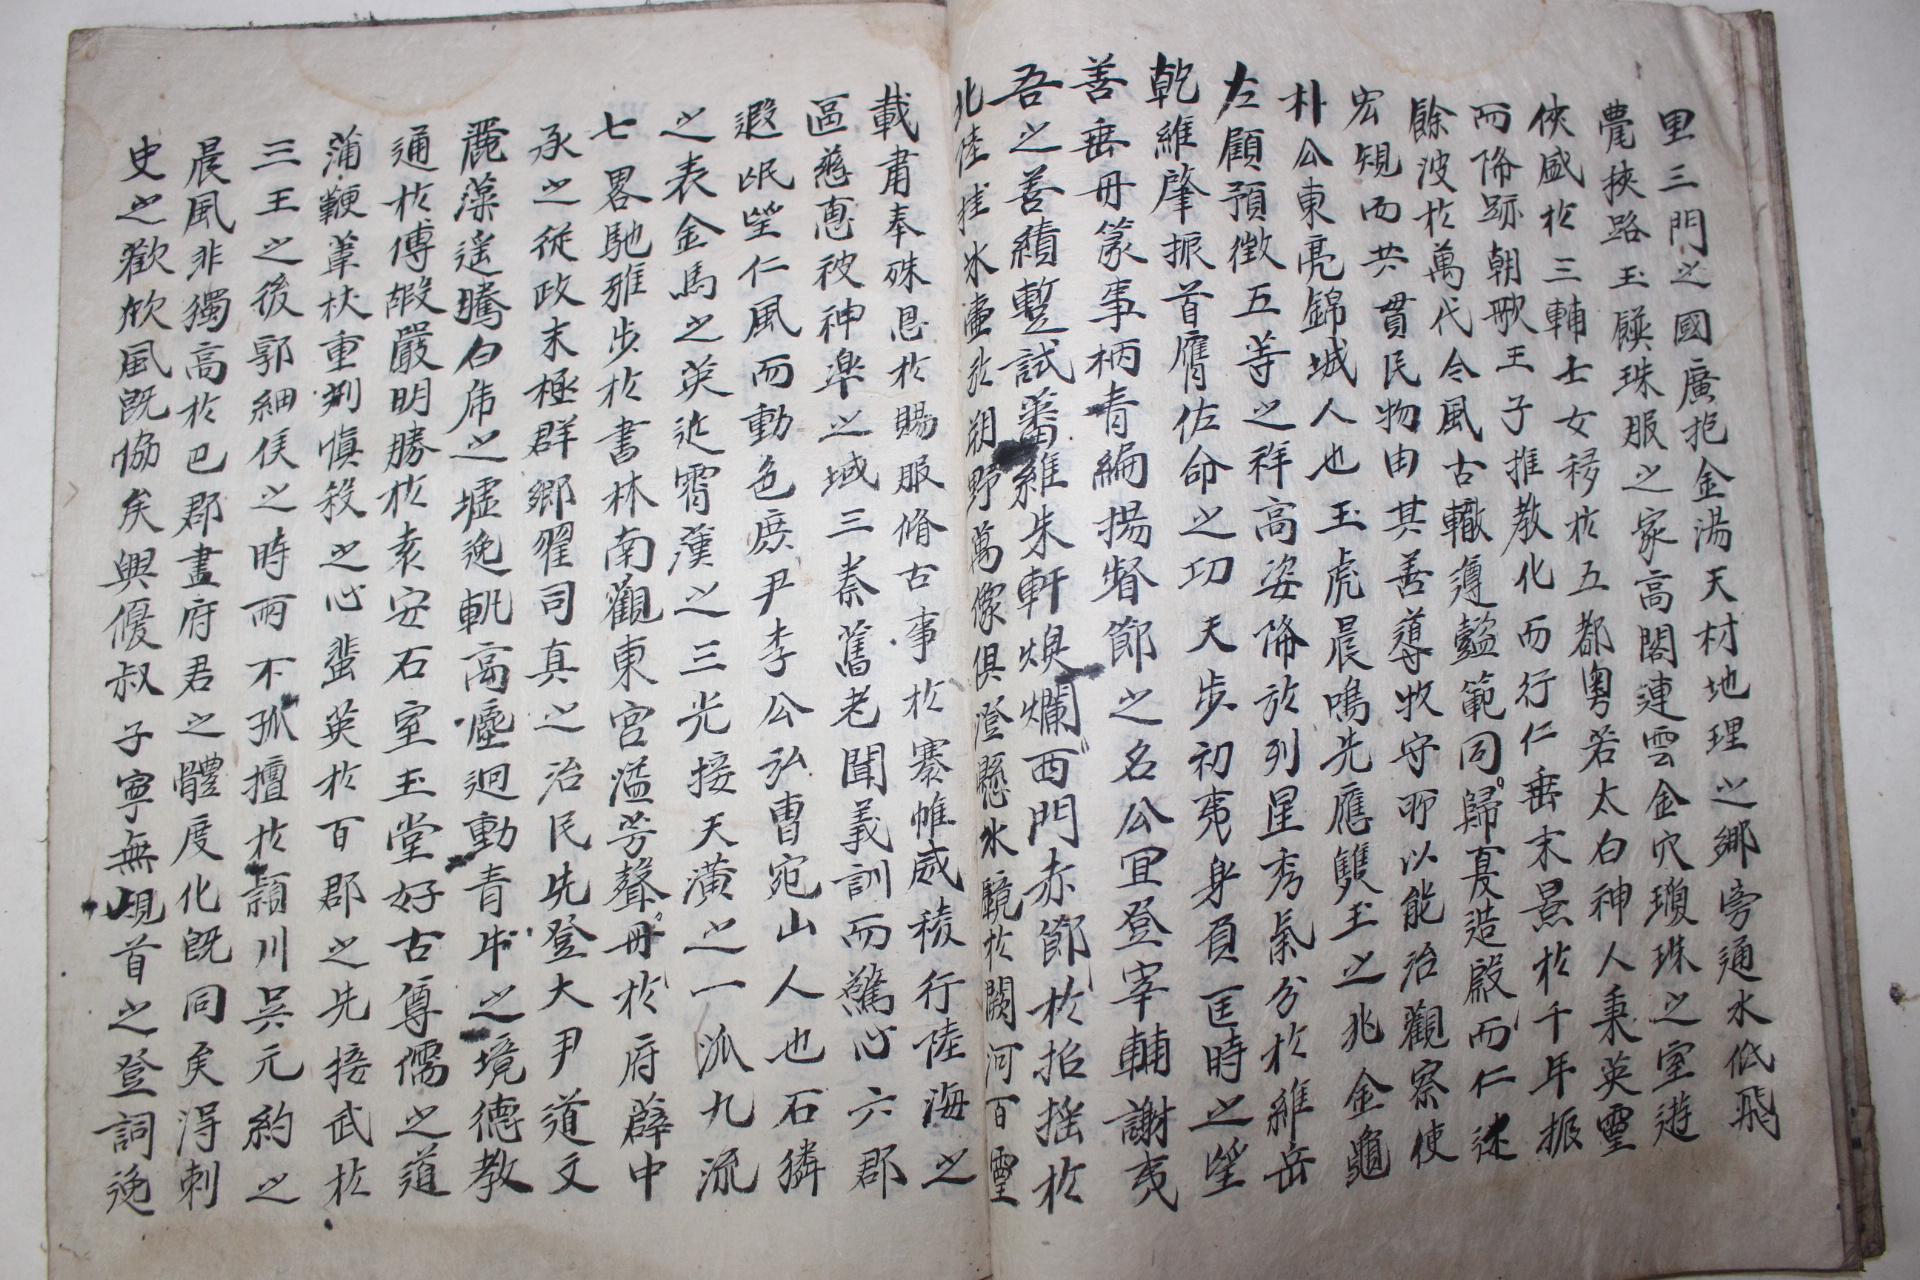 里三門之國廣抱金湯天材地理之鄉旁通水低飛
甍挾路玉饌珠服之家高閣連雲金穴瓊珠之室遊
俠盛於三輔士女移於五都粤若太白神人秉英靈
而降跡朝歌王子推教化而行仁垂末景於千年振
餘波於萬代令風古轍遵懿範同歸夏造殷而仁述
宏規而共貫民物由其善導牧守所以能治觀察使
朴公東亮錦城人也玉虎晨鳴先應雙玉之兆金龜
左顧預徵五等之祥高姿降於列星秀氣分於維岳
乾維肇振首膺佐命之功天步初夷身負匡時之望
善垂冊篆事柄青編揚督節之名公冝登宰輔謝夷
吾之善績蹔試蕃維朱軒煥爛西門赤節於招搖於
北陸挂氷壷於朔野萬像俱澄懸水鏡於闕河百靈
載肅奉殊恩於賜服脩古事於褰帷威稜行陸海之
區慈恵被神皐之域三秦舊老聞義訓而驚心六郡
遐氓望仁風而動色庶尹李公弘曺宛山人也石獜
之表金馬之英近霄漢之三光接天潢之一派九流
七畧馳雅步於書林南觀東宮溢芳聲冊於府薜中
承之從政末極群鄉翟司真之治民先登大尹道文
麗藻遥騰白乕之墟逸軌高塵迥動青牛之境德教
通於傅嘏嚴明勝於袁安石室玉堂好古尊儒之道
蒲鞭葦杖重刑慎殺之心蜚英於百郡之先接武於
三王之後郭細侯之時雨不孤擅於頴川吳元約之
晨風非獨高於巴郡畫府君之體度化既同矣得刺
史之歡欣風既恊矣興優叔子寧無峴首之登詞逸